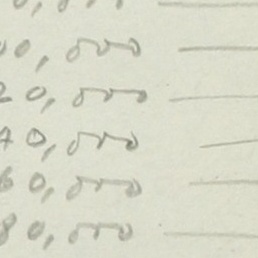 00,000 —
20,000 —
40,000 —
60,000 —
80,000 —